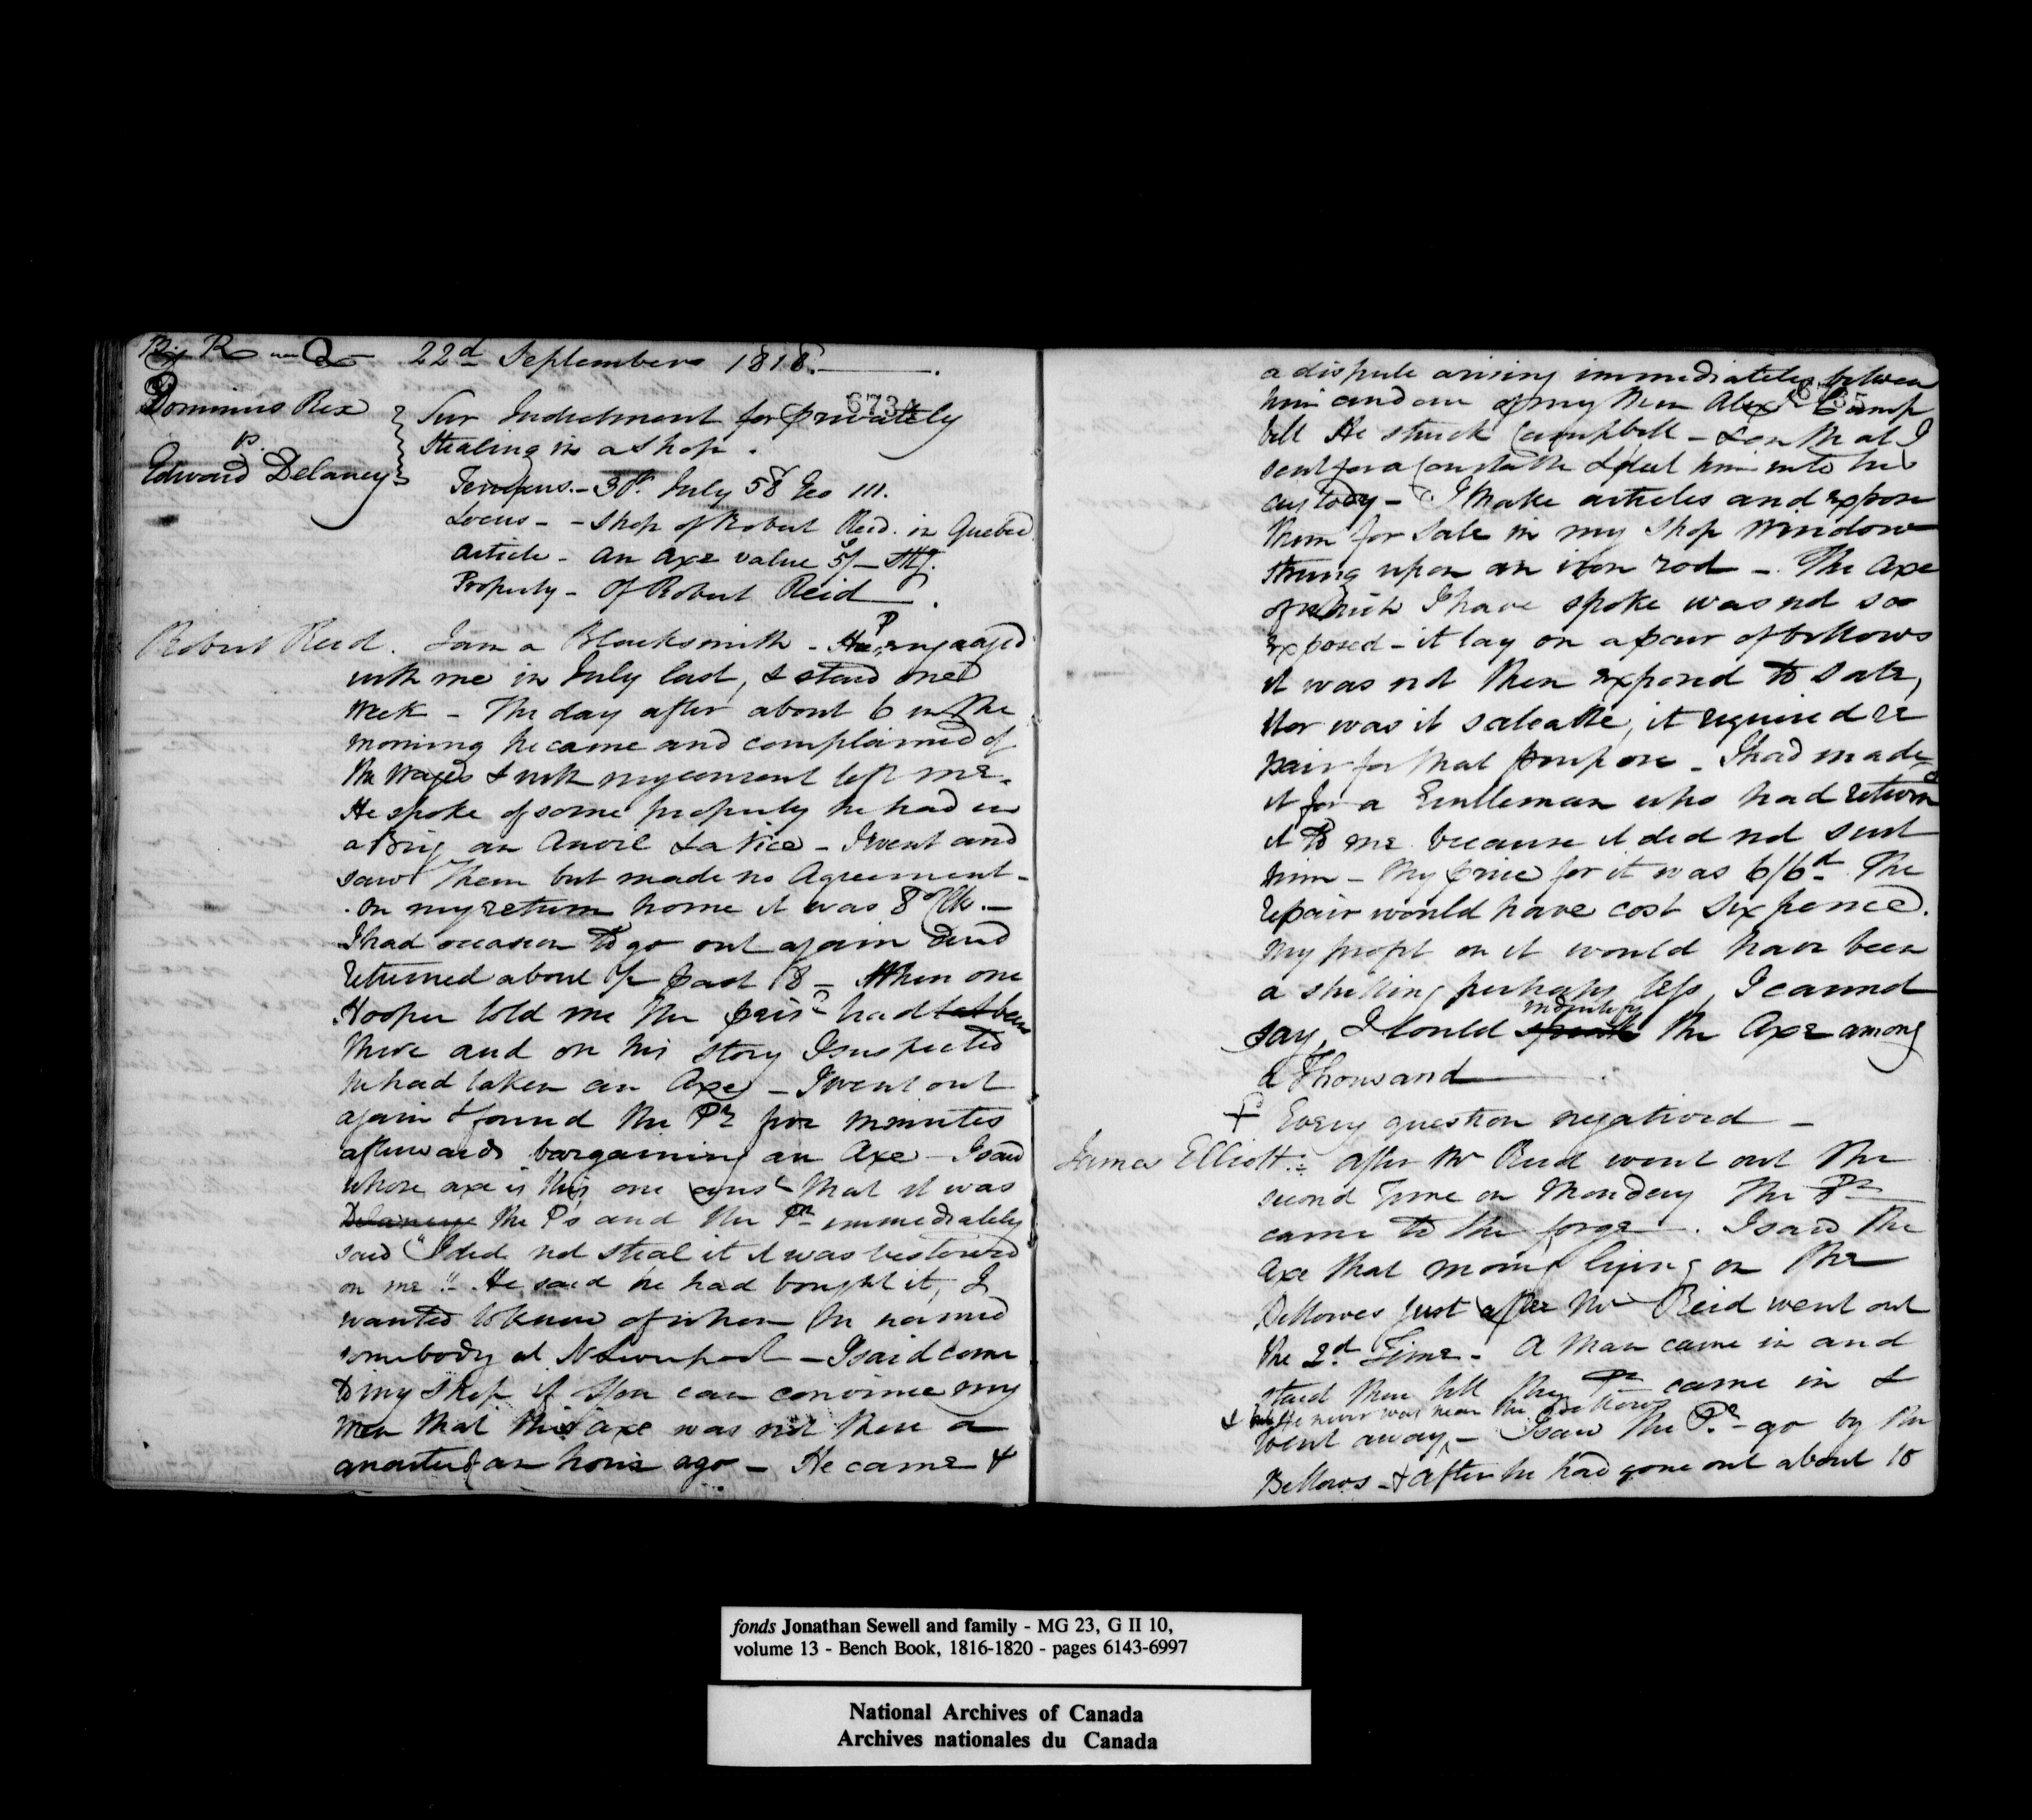 22d September 1818.
6734
Dominus Rex
vs.
Edward Delaney
Sur Indictment for privately
stealing in a shop.
Tempus. - 30. July 58 Geo III.
Locus - - shop of Robert Reid. in Quebec
Article - an axe value 5/- Stg.
Property - Of Robert Reid
Robert Reid. I am a Blacksmith - engaged
with me in July last, & staid one
week - The day after about 6 in the
morning he came and complained of
the wages & with my consent left me.
He spoke of some property he had in
a Brig an Anvil & a Vice - I went and
saw them but made no Agreement -
on my return home it was 8
I had occasion to go out again and
returned about ½ past 8 - When one
Hooper told me the prisr had been
there and on his story I suspected
he had taken an Axe - I went out
again & found the Pr five minutes
afterwards bargaining an Axe - I said
whose axe is this one ansd that it was
Delaneys the P's and the Pr immediately
said "I did not steal it it was bestowed
on me". He said he had bought it, I
wanted to know of whom he named
somebody at N Liverpool - I said come
to my shop if you can convince my
men that this axe was not there a
quarter of an hour ago - He came &
a dispute arising immediately between
him and one of my men Alexr Camp
bell He struck Campbell - & on that I
sent for a Constable & put him into his
custody - I make articles and expose
them for sale in my shop window
strung upon an iron rod - The Axe
of which I have spoke was not so
exposed - it lay on a pair of bellows
it was not then exposed to sale,
nor was it saleable, it required re
pair for that purpose - I had made
it for a Gentleman who had return
it to me because it did not suit
him - My price for it was 6/6d The
repair would have cost sixpence.
My profit on it would have been
a shilling perhaps less, I cannot
indentify
say, I could the Axe among
a Thousand
Every question negatived -
James Elliott: After Mr Reid went out the
second Time on Monday The Pr
came to the forge. I saw the
axe that morng lying on the
Bellowes just after Mr Reid went out
the 2d Time - A Man came in and
staid there till the Pr came in &
& He never was near the bellows
went away, - I saw the Pr. go by the
Bellows - & after he had gone out about 10
fonds Jonathan Sewell and family - MG 23, G II 10,
volume 13 - Bench Book, 1816-1820 - pages 6143-6997
National Archives of Canada
Archives nationales du Canada